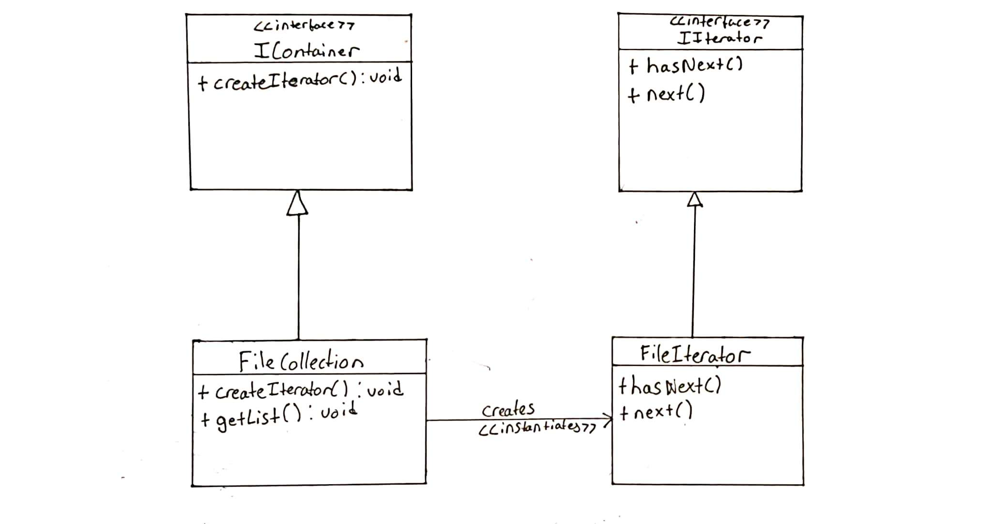 <<interface>>
IContainer
+ createIterator() : void
<<interface>>
IIterator
+ hasNext()
+ next()
FileCollection
+ createIterator() : void
+ getList() : void
creates
<<instantiates>>
FileIterator
+hasNext()
+ next()